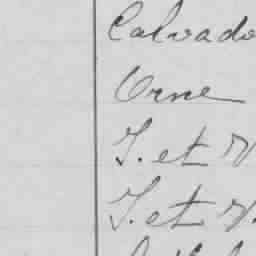 Calvado
Orne
I. et V
I. et V.